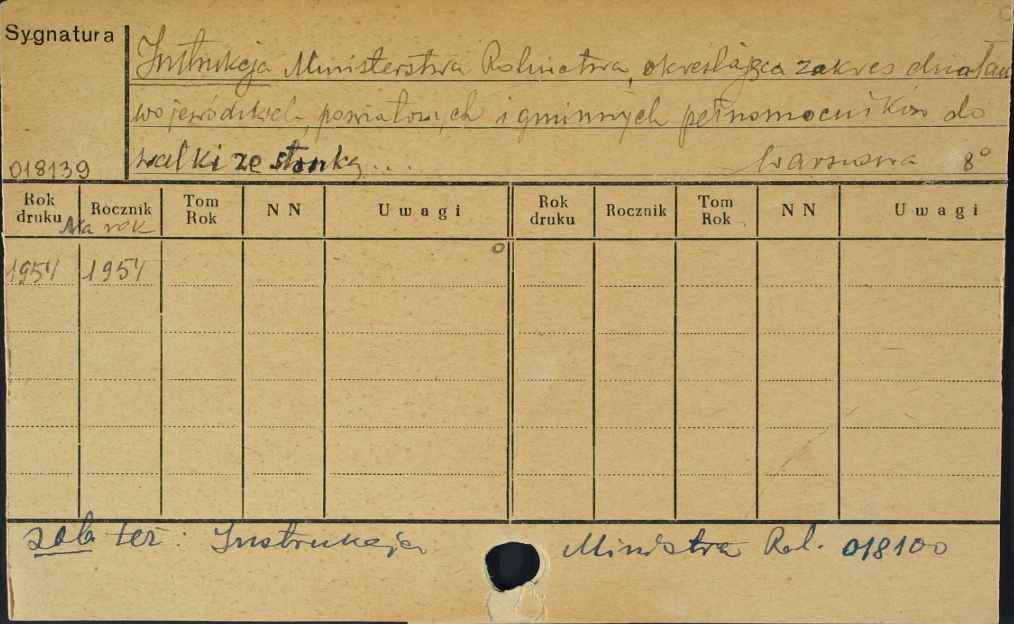 Sygnatura
Instrukcja Ministerstwa Rolnictwa, określająca zakres działań
wojewódzkich, powiatowych i gminnych pełnomocników do
walki ze stonką ... Warszawa 8°
018139
Rok druku Rocznik Tom Rok NN Uwagi Rok druku Rocznik Tom Rok NN Uwagi
Na rok
1954 1954
zob też: Instrukcja Ministra Rol. 018100